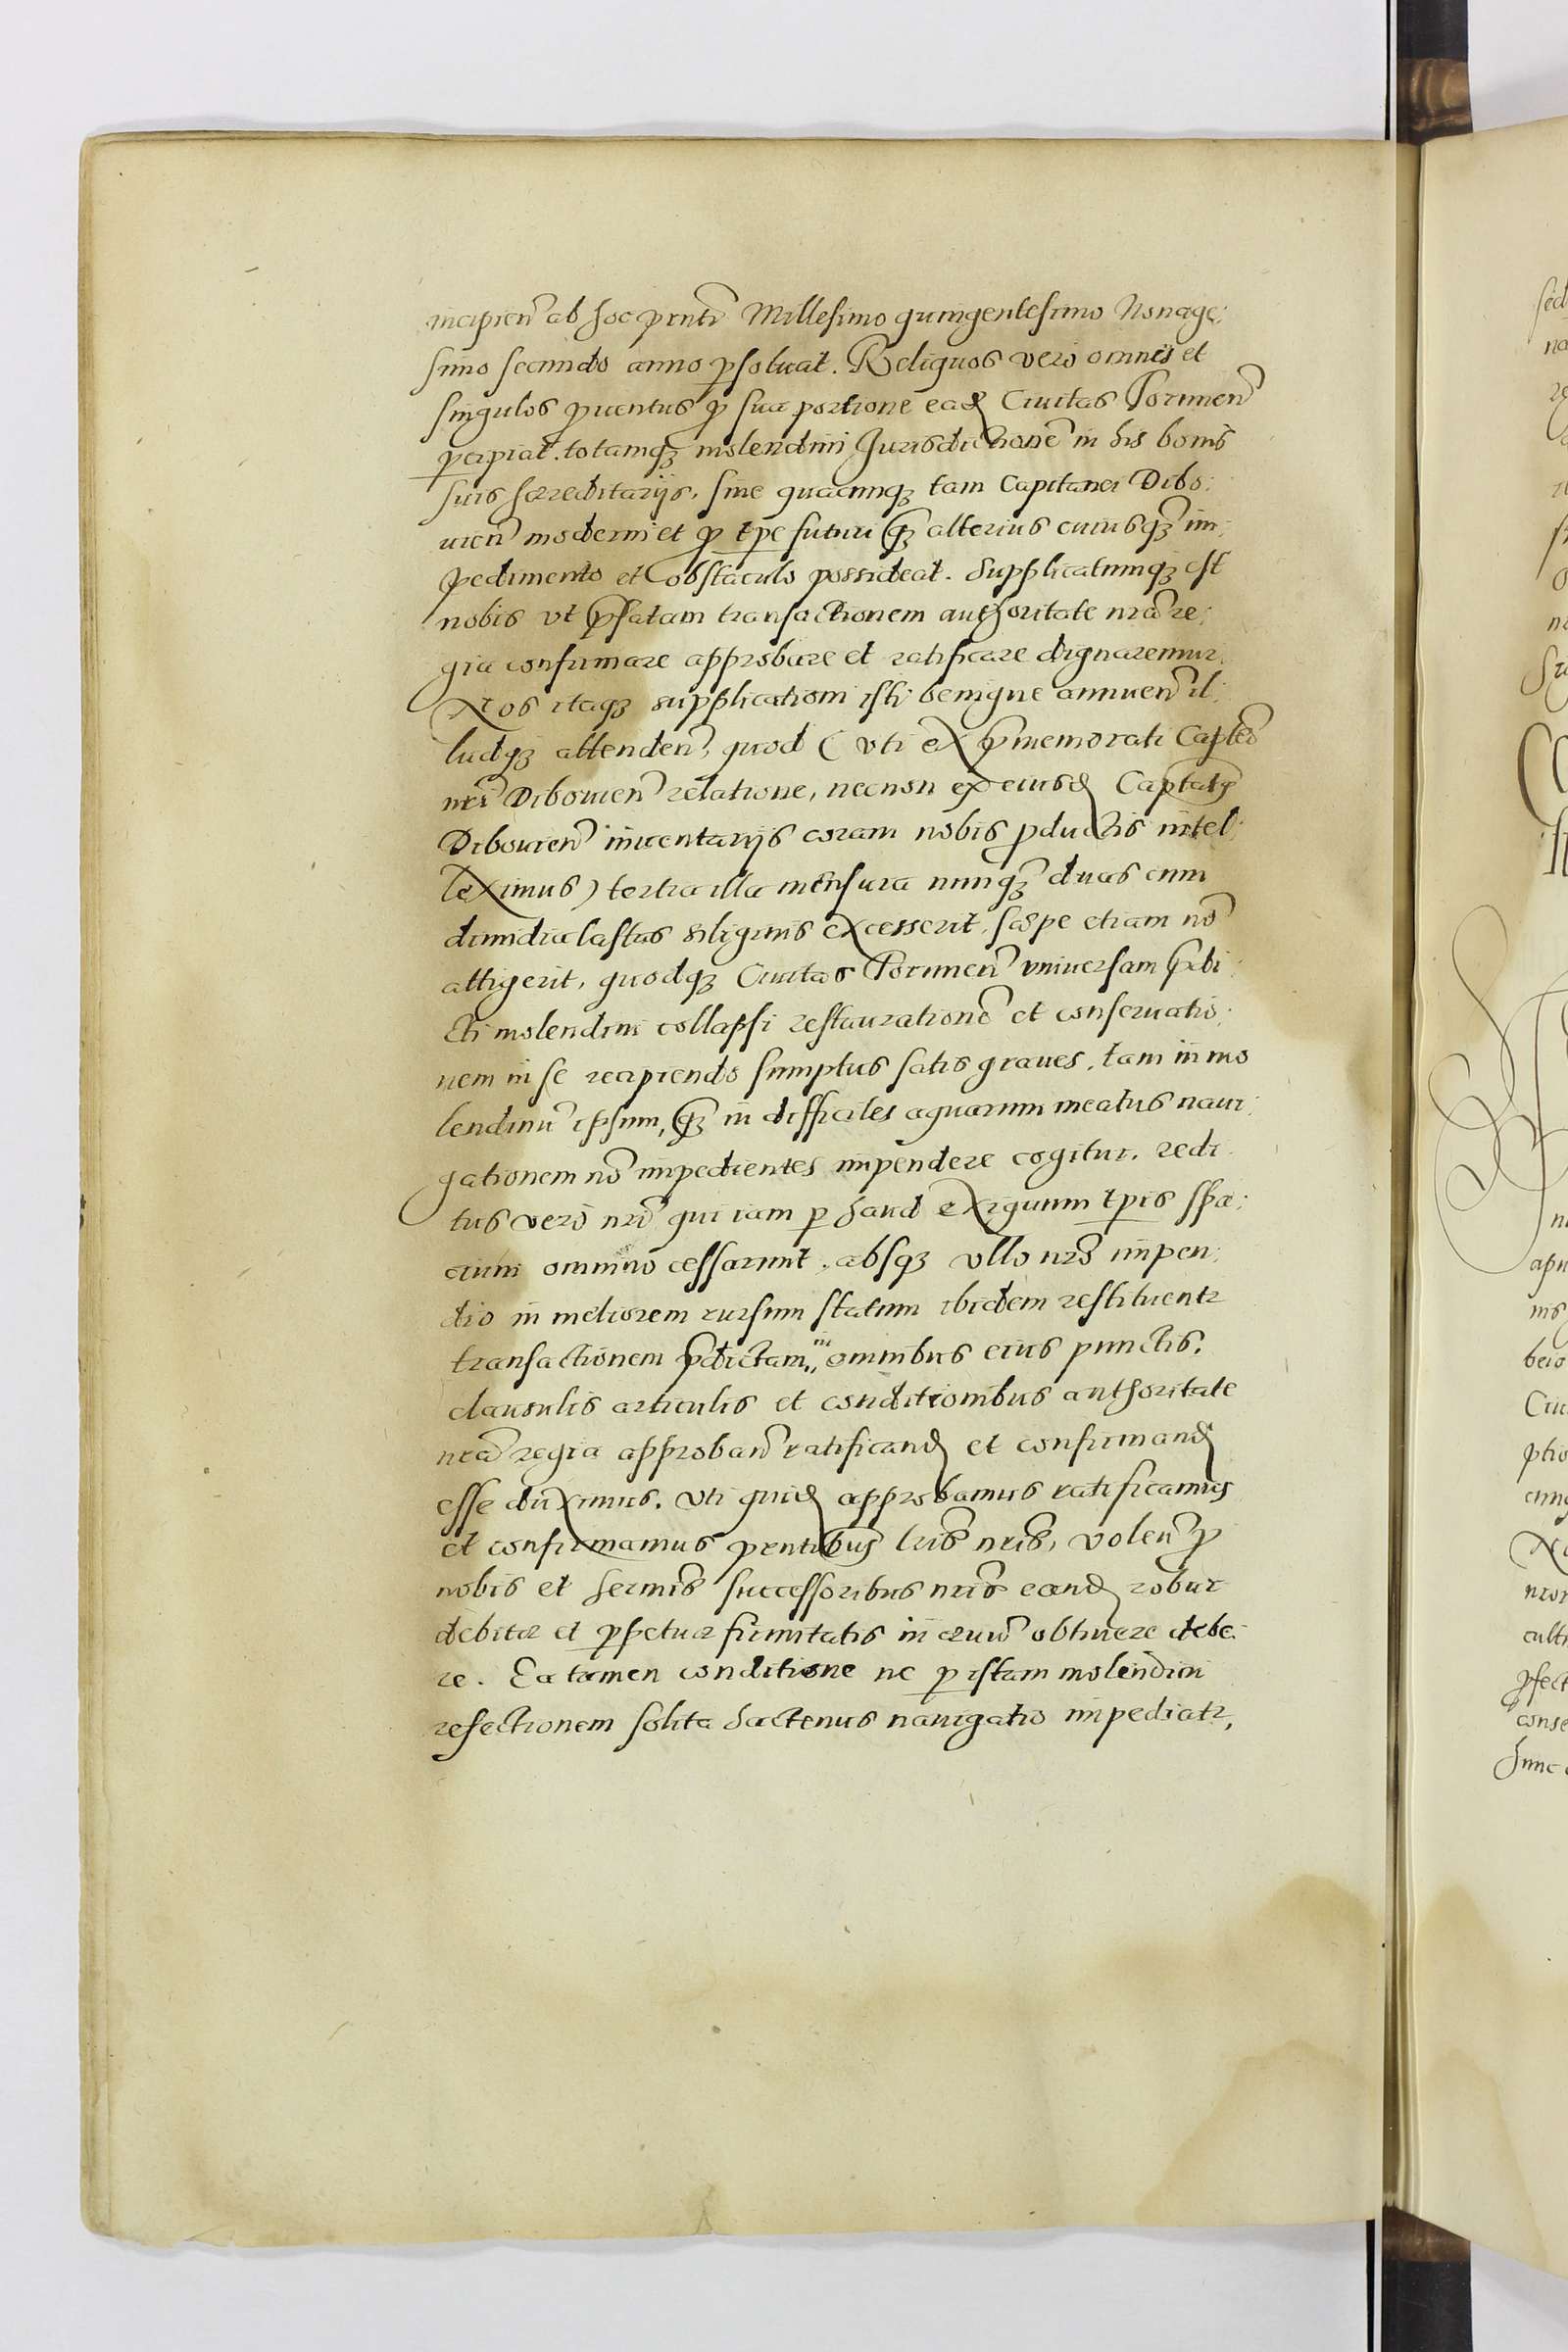 incipien̄ ab hoc pn̄ti Millesimo quingentesimo Nonage:
simo secundo anno ꝑsoluat. Reliquos vero omnes et
singulos ꝓuentus ꝓ sua portione ead Ciuitas Torunen̄
ꝑcipiat. totamqꝫ molendini Jurisdictionē in his bonis
suis hæreditarijs, sine quocunqꝫ tam Capitanei Dibo:
uien̄ moderni et ꝓ tp̄e futuri qꝫ alterius cuiusqꝫ im:
pedimento et obstaculo possideat. Supplicatumqꝫ est
nobis vt p̄fatam transactionem authoritate nr̄a re:
gia confirmare approbare et ratificare dignaremur.
Nos itaqꝫ supplicationi isti benigne annuen̄ il:
ludqꝫ attenden̄, quod (vti ex p̄memorati Capitā
nei Dibouien̄ relatione, necnon ex eiusd
Dibouien̄ inuentarijs coram nobis ꝓductis intel:
leximus) tertia illa mensura nunqꝫ duas cum
dimidia lastas siliginis excesserit, sæpe etiam nō
attigerit, quodqꝫ Ciuitas Torunen̄ vniuersam p̄di:
cti molendini collapsi restaurationē et conseruatio:
nem in se recipiendo sumptus satis graues, tam in mo
lendinū ipsum, qꝫ in difficiles aquarum meatus naui:
gationem nō impedientes impendere cogitur. redi
tus vero nr̄i qui iam ꝑ haud exiguum tp̄is spa:
cium omnino cessarunt, absqꝫ vllo nr̄o impen:
dio in meliorem rursum statum ibidem restituentr
transactionem p̄dictam in omnibus eius punctis,
clausulis articulis et conditionibus authoritate
nr̄a regia approban̄ ratificand et confirmand
esse duximus. vti quid approbamus ratificamus
et confirmamus pn̄tibus lr̄is nr̄is, volen̄ ꝓ
nobis et Sermis successoribus nr̄is eand robur
debitæ et ꝑpetuæ firmitatis in æuū obtinere debe:
re. Ea tamen conditione ne ꝑ istam molendini
refectionem solita hactenus nauigatio impediatr,